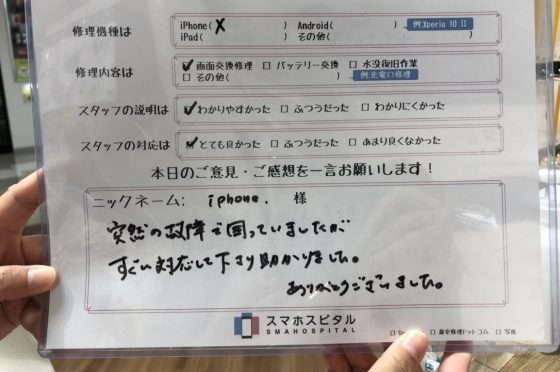 修理機種は
iPhone( X ) Android( ) 例:Xperia 10 Ⅱ
iPad( ) その他( )
修理内容は
☑画面交換修理 □バッテリー交換 □水没復旧作業
□その他( ) 例:充電口修理
スタッフの説明は
☑わかりやすかった □ふつうだった □わかりにくかった
スタッフの対応は
☑とても良かった □ふつうだった □あまり良くなかった
本日のご意見・ご感想を一言お願いします！
ニックネーム: iphone. 様
突然の故障で困っていましたが
すぐい対応して下さり助かりました。
ありがとうございました。
スマホスピタル
SMAHOSPITAL
□最安修理ドットコム □写真